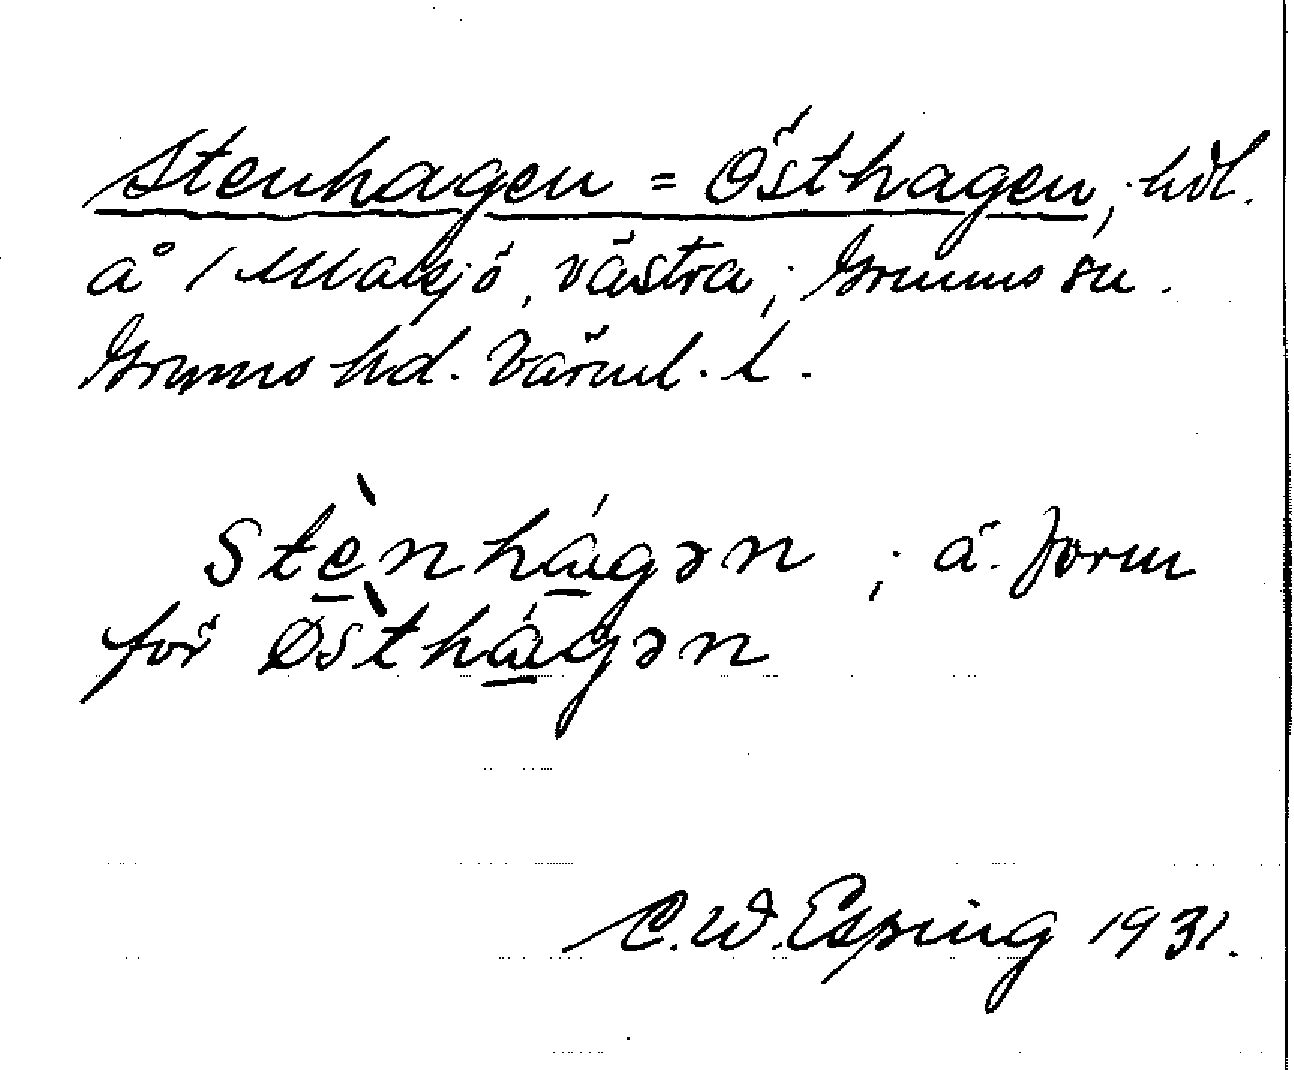 Stenhagen = Östhagen; hdl.
å 1 Malsjö, västra; Grums sn.
Grums hd. Värml. l.
Stènhágən ; ä. form
för Østhágən
C.W. Esping 1931.